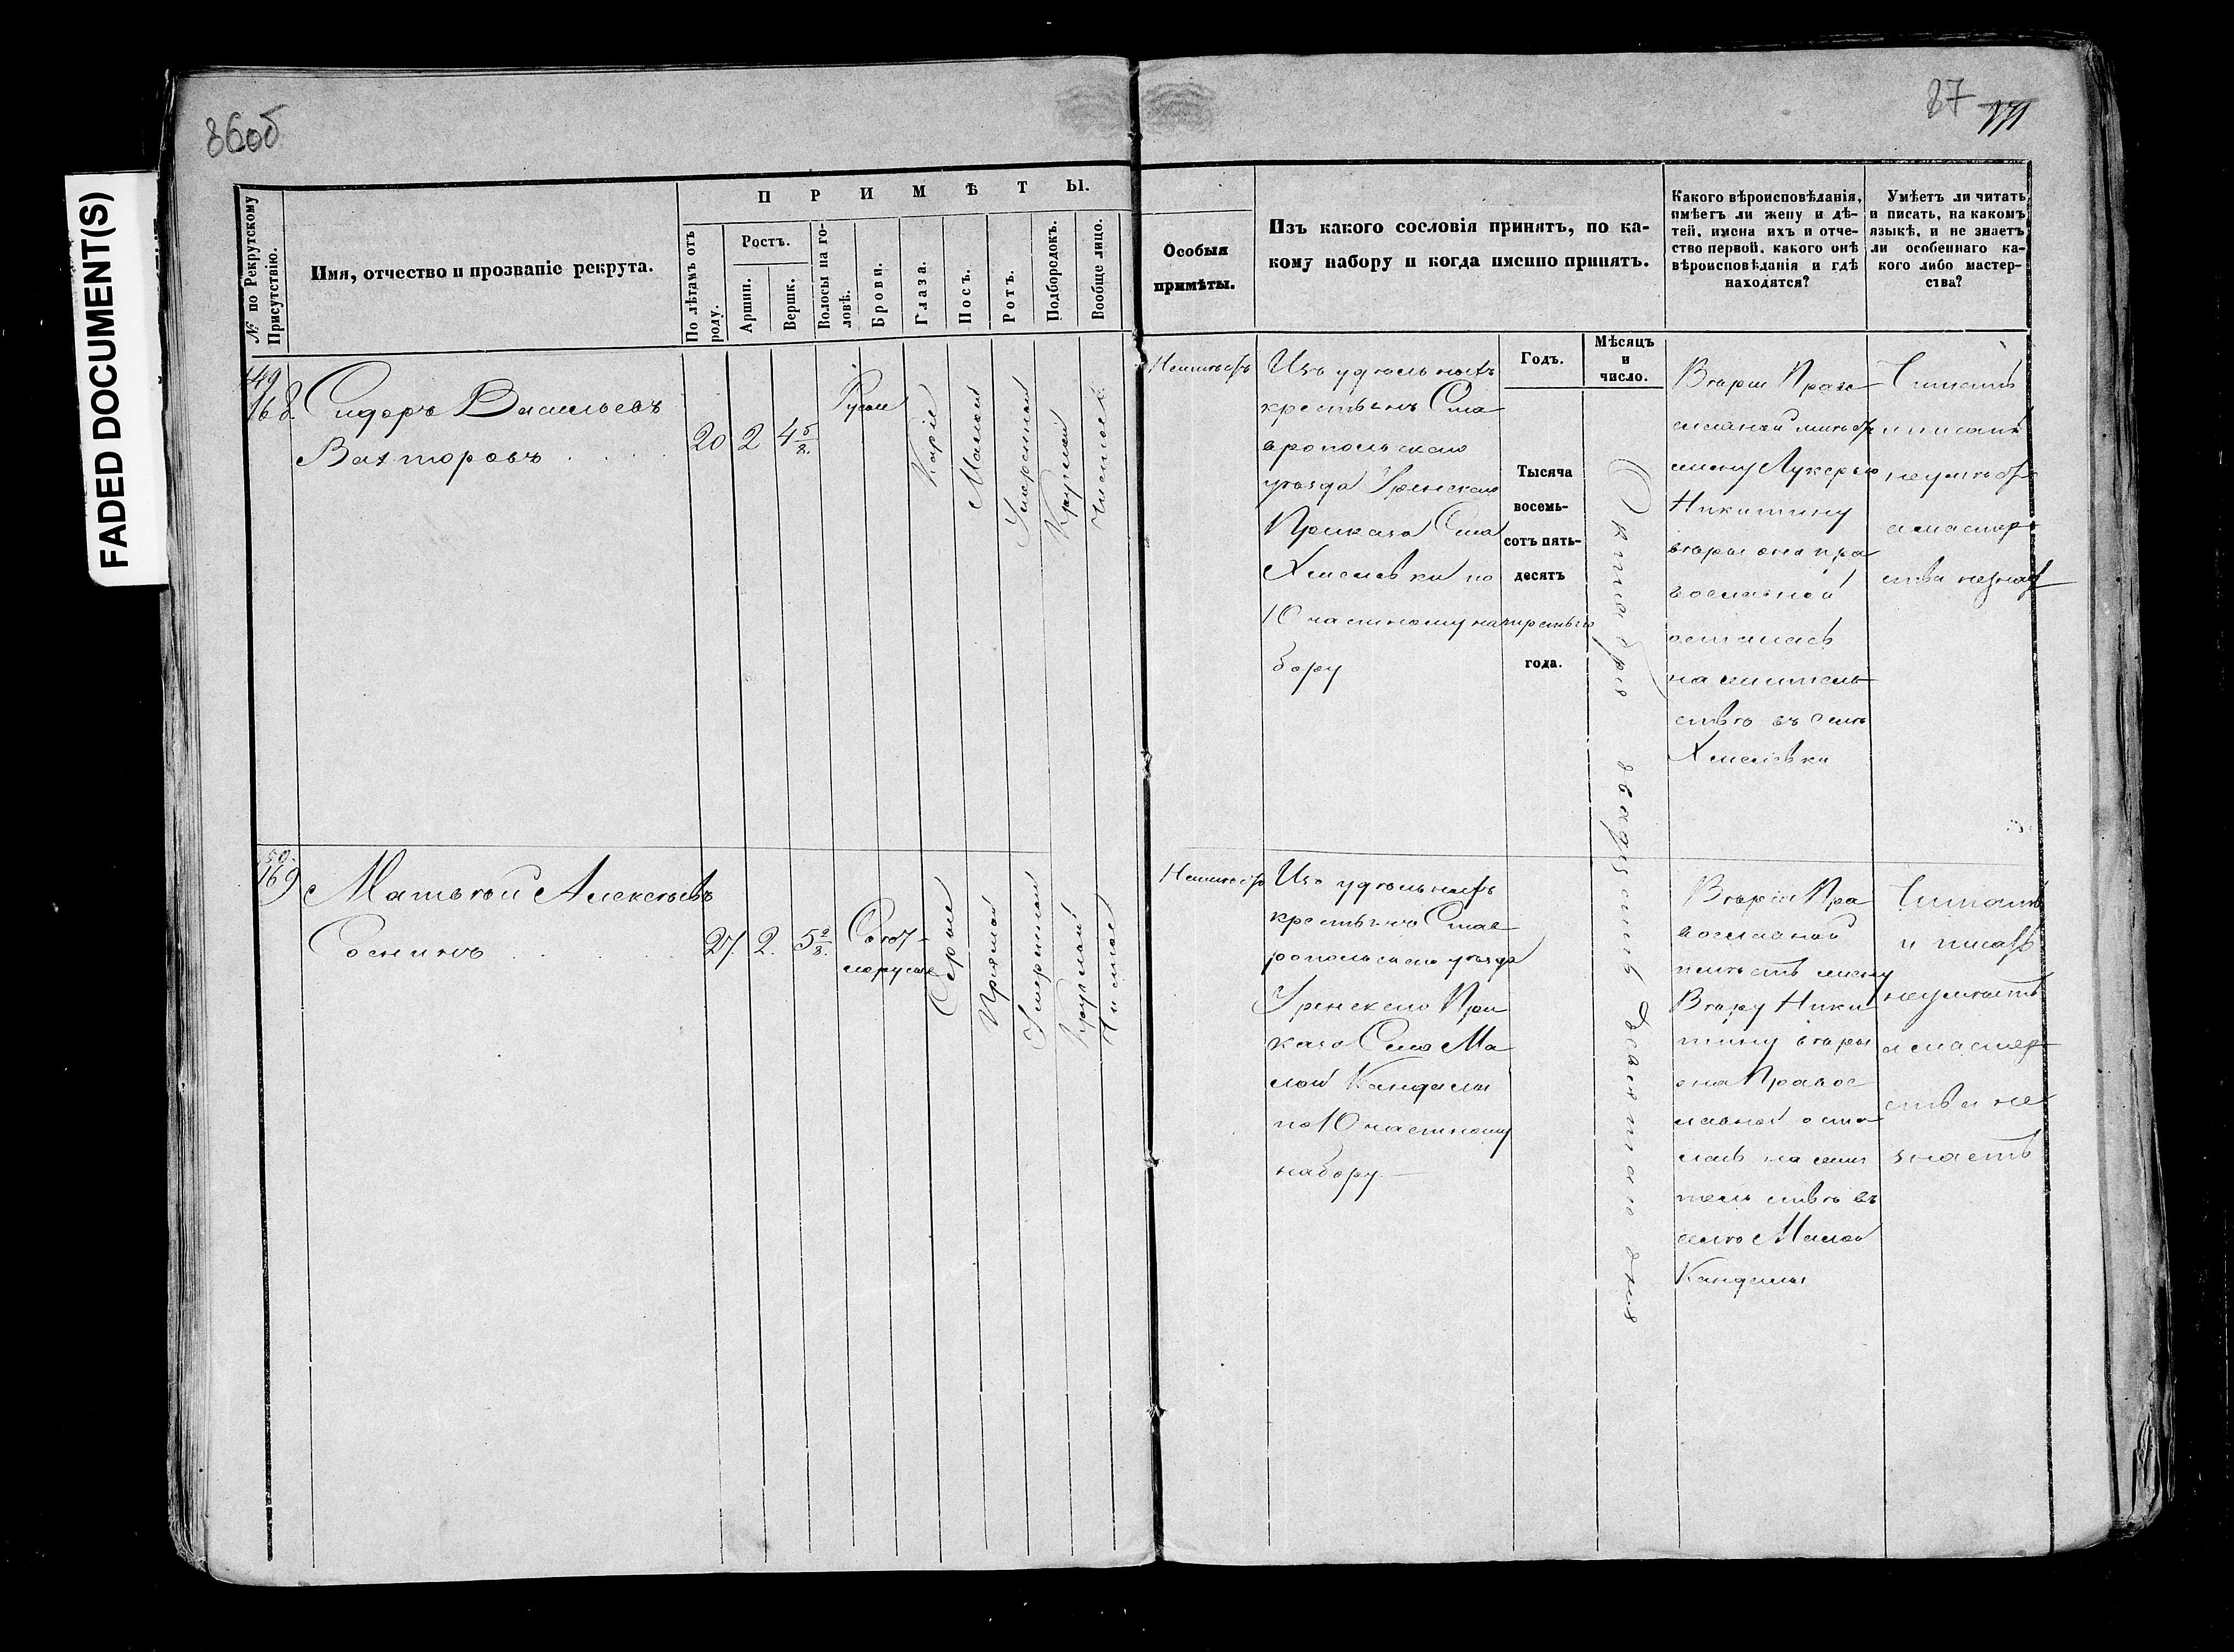 FADED DOCUMENT(S)
86об
87
№ по Рекрутскому Присутствію.
Имя, отчество и прозваніе рекрута.
ПРИМѢТЫ.
По лѣтамъ отъ роду.
Ростъ.
Аршин.
Вершк.
Волосы на головѣ.
Брови.
Глаза.
Носъ.
Ротъ.
Подбородокъ.
Вообще лицо.
Особыя
примѣты.
Изъ какого сословія принятъ, по ка-
кому набору и когда именно принятъ.
Годъ.
Мѣсяцъ
и
число.
Какого вѣроисповѣданія,
имѣетъ ли жену и дѣ-
тей, имена ихъ и отче-
ство первой, какого онѣ
вѣроисповѣданія и гдѣ
находятся?
Умѣетъ ли читать
и писать, на какомъ
языкѣ, и не знаетъ
ли особеннаго ка-
кого либо мастер-
ства?
49
168.
Сидоръ Васильевъ
Вахторовъ
20
2
4 5/8.
Русые
Каріе
Малой
Умеренной
Круглой
Чистое
Неимѣетъ
Изъ удѣльныхъ
крестьянъ Ста
вропольскаго
уѣзда Уренскаго
Приказа Села
Хмелевки по
10 частному на
бору
Тысяча
восемь-
сотъ пять-
десятъ
третьяго
года.
Октября двадцать девятаго дня
Вѣры Прав
ославной имѣетъ
жену Лукерью
Никитину
вѣры она пра
вославной
осталась
на житель
ствѣ въ селѣ
Хмелевки
Читать
и писать
неумѣетъ
а мастер
ства незнаетъ
50.
169
Матвѣй Алексѣевъ
Соснинъ
27.
2.
5 2/8.
Светлорусые
Серые
Прямой
Умеренной
Круглой
Чистое
Неимѣетъ
Изъ удѣльныхъ
крестьянъ Став
ропольскаго уѣзда
Уренскаго При
каза Села Ма
лой Кандалы
по 10 частному
набору
Вѣры Пра
вославной
имѣетъ жену
Вѣру Ники
тину вѣры
она Правос
лавной оста
лась на жи
тельствѣ въ
селѣ Малой
Кандалы
Читать
и писать
неумѣетъ
а мастер
ства не
знаетъ